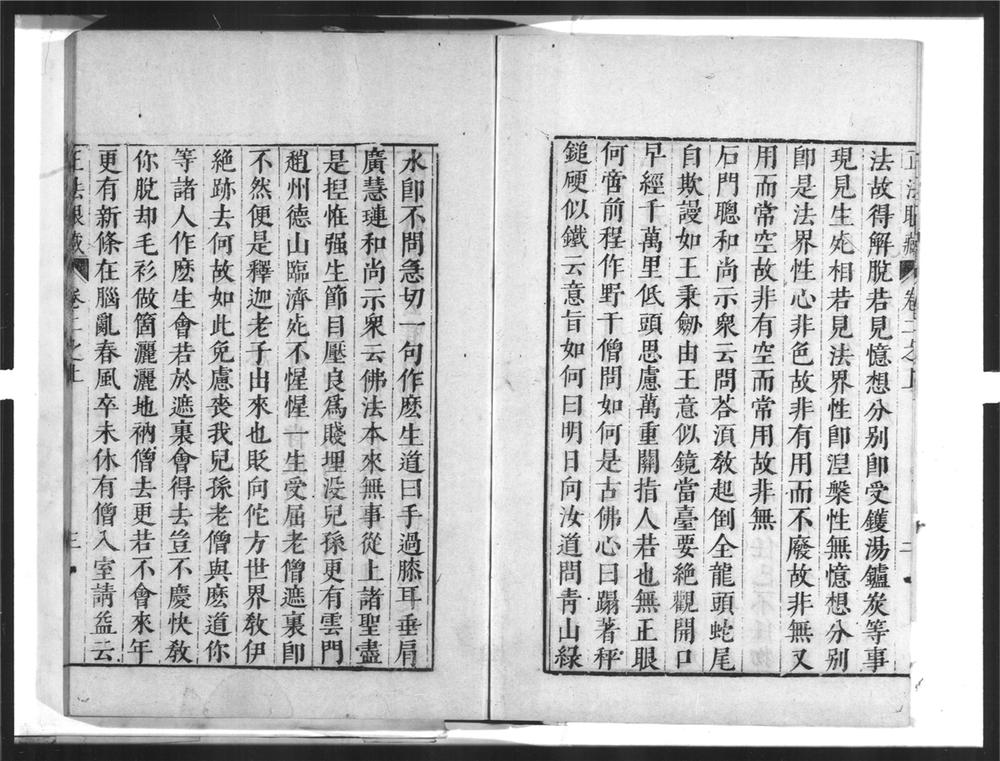 正法眼藏 卷二之上 二
法故得解脫若見憶想分別卽受鑊湯鑪炭等事
現見生死相若見法界性卽涅槃性無憶想分別
卽是法界性心非色故非有用而不廢故非無又
用而常空故非有空而常用故非無
石門聰和尚示衆云問荅須敎起倒全龍頭蛇尾
自欺謾如王秉劒由王意似鏡當臺要絶觀開口
早經千萬里低頭思慮萬重關指人若也無正眼
何啻前程作野干僧問如何是古佛心曰蹋著秤
鎚硬似鐵云意旨如何曰明日向汝道問靑山綠
水卽不問急切一句作麽生道曰手過膝耳垂肩
廣慧璉和尚示衆云佛法本來無事從上諸聖盡
是揑恠强生節目壓良爲賤埋没兒孫更有雲門
趙州德山臨濟死不惺惺一生受屈老僧遮裏卽
不然便是釋迦老子出來也貶向佗方世界敎伊
絶跡去何故如此免慮喪我兒孫老僧與麽道你
等諸人作麽生會若於遮裏會得去豈不慶快敎
你脫却毛衫做箇灑灑地衲僧去更若不會來年
更有新條在腦亂春風卒未休有僧入室請益云
正法眼藏 卷二之上 三